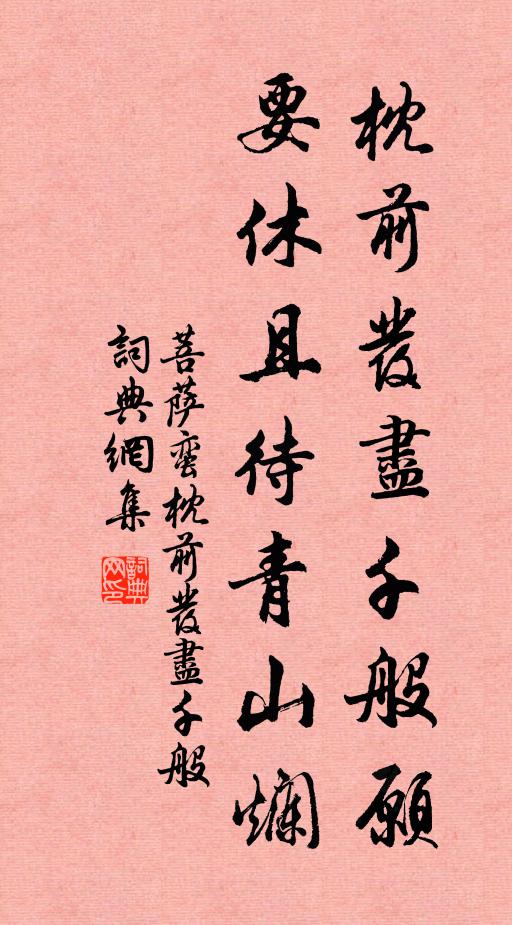 枕前發盡千般願
要休且待青山爛
菩薩蠻枕前發盡千般
詞典網集
詞典网印